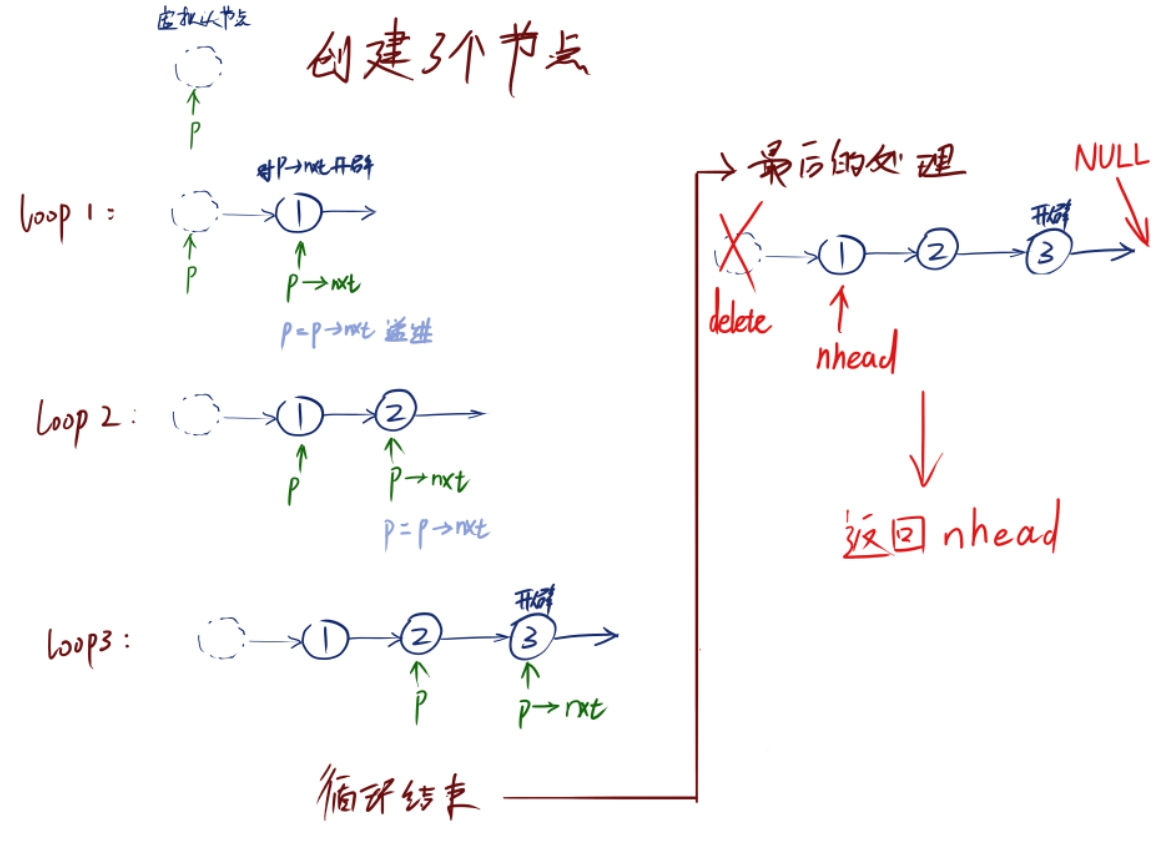 虚拟头节点
创建3个节点
P
对P→nxt开辟
loop 1:
1
P
P→nxt
p=p→nxt 递进
loop 2:
1
2
P
P→nxt
p=p→nxt
开辟
loop3:
1
2
3
P
P→nxt
循环结束
最后的处理
NULL
开辟
1
2
3
delete
nhead
返回 nhead